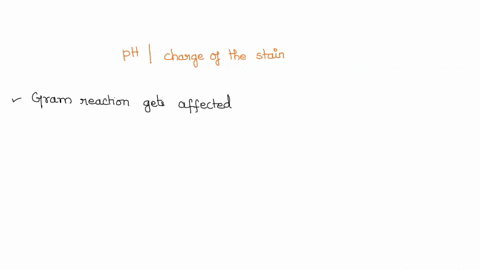 pH | charge of the stain
✓ Gram reaction gets affected